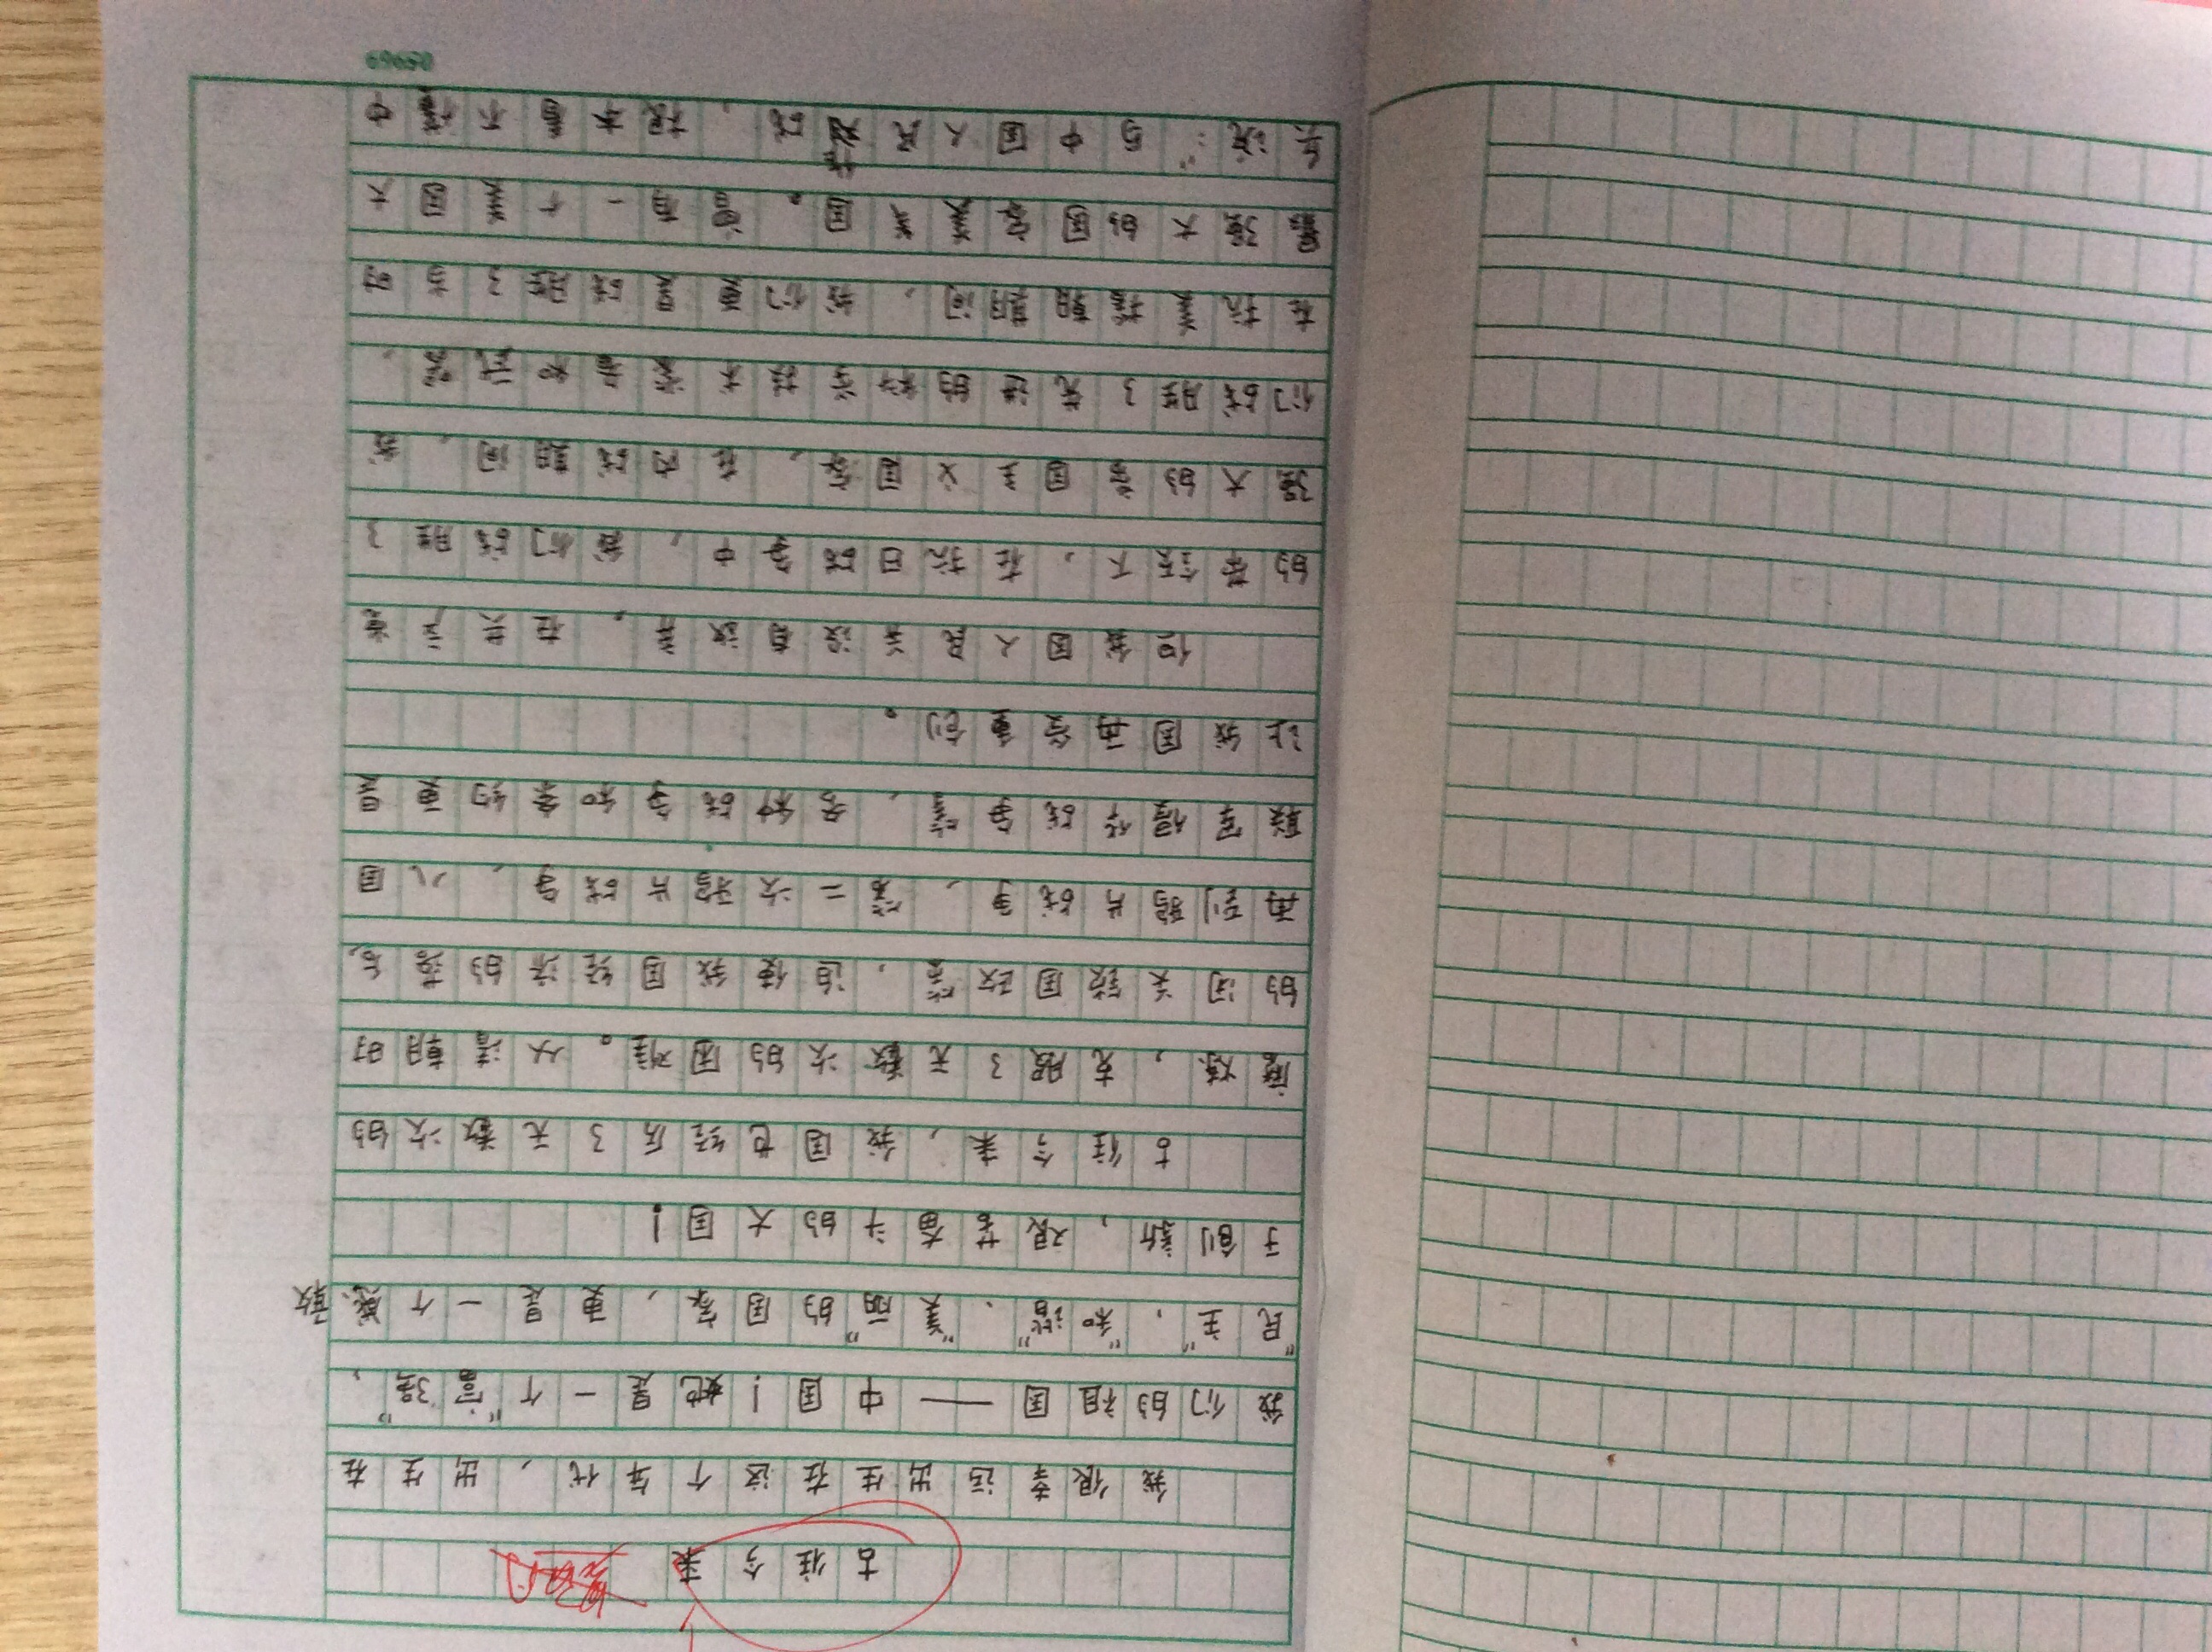 古往今来
我很幸运出生在这个年代,出生在
我们的祖国——中国!她是一个"富强"、
"民主"、"和谐"、"美丽"的国家,更是一个敢
于创新,艰苦奋斗的大国!
古往今来,我国也经历了无数次的
磨炼,克服了无数次的困难。从清朝时
的闭关锁国政策,迫使我国经济的落后,
再到鸦片战争,第二次鸦片战争,八国
联军侵华战争等,多种战争和条约
让我国再受重创。
但我国人民没有放弃。在共产党
的带领下,在抗日战争中,我们战胜了
强大的帝国主义国家,在内战期间,我
们战胜了先进的
在抗美援朝期间,我们战胜了
最强大的国家美国。曾有一个美国大
兵说:"与中国人民战,根本看不清中